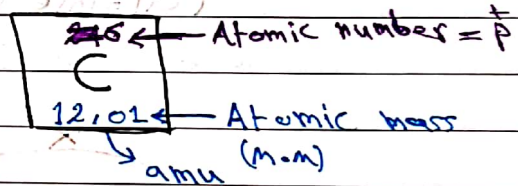 6 ← Atomic number = p⁺
C
12,01 ← Atomic mass
(m.m)
amu